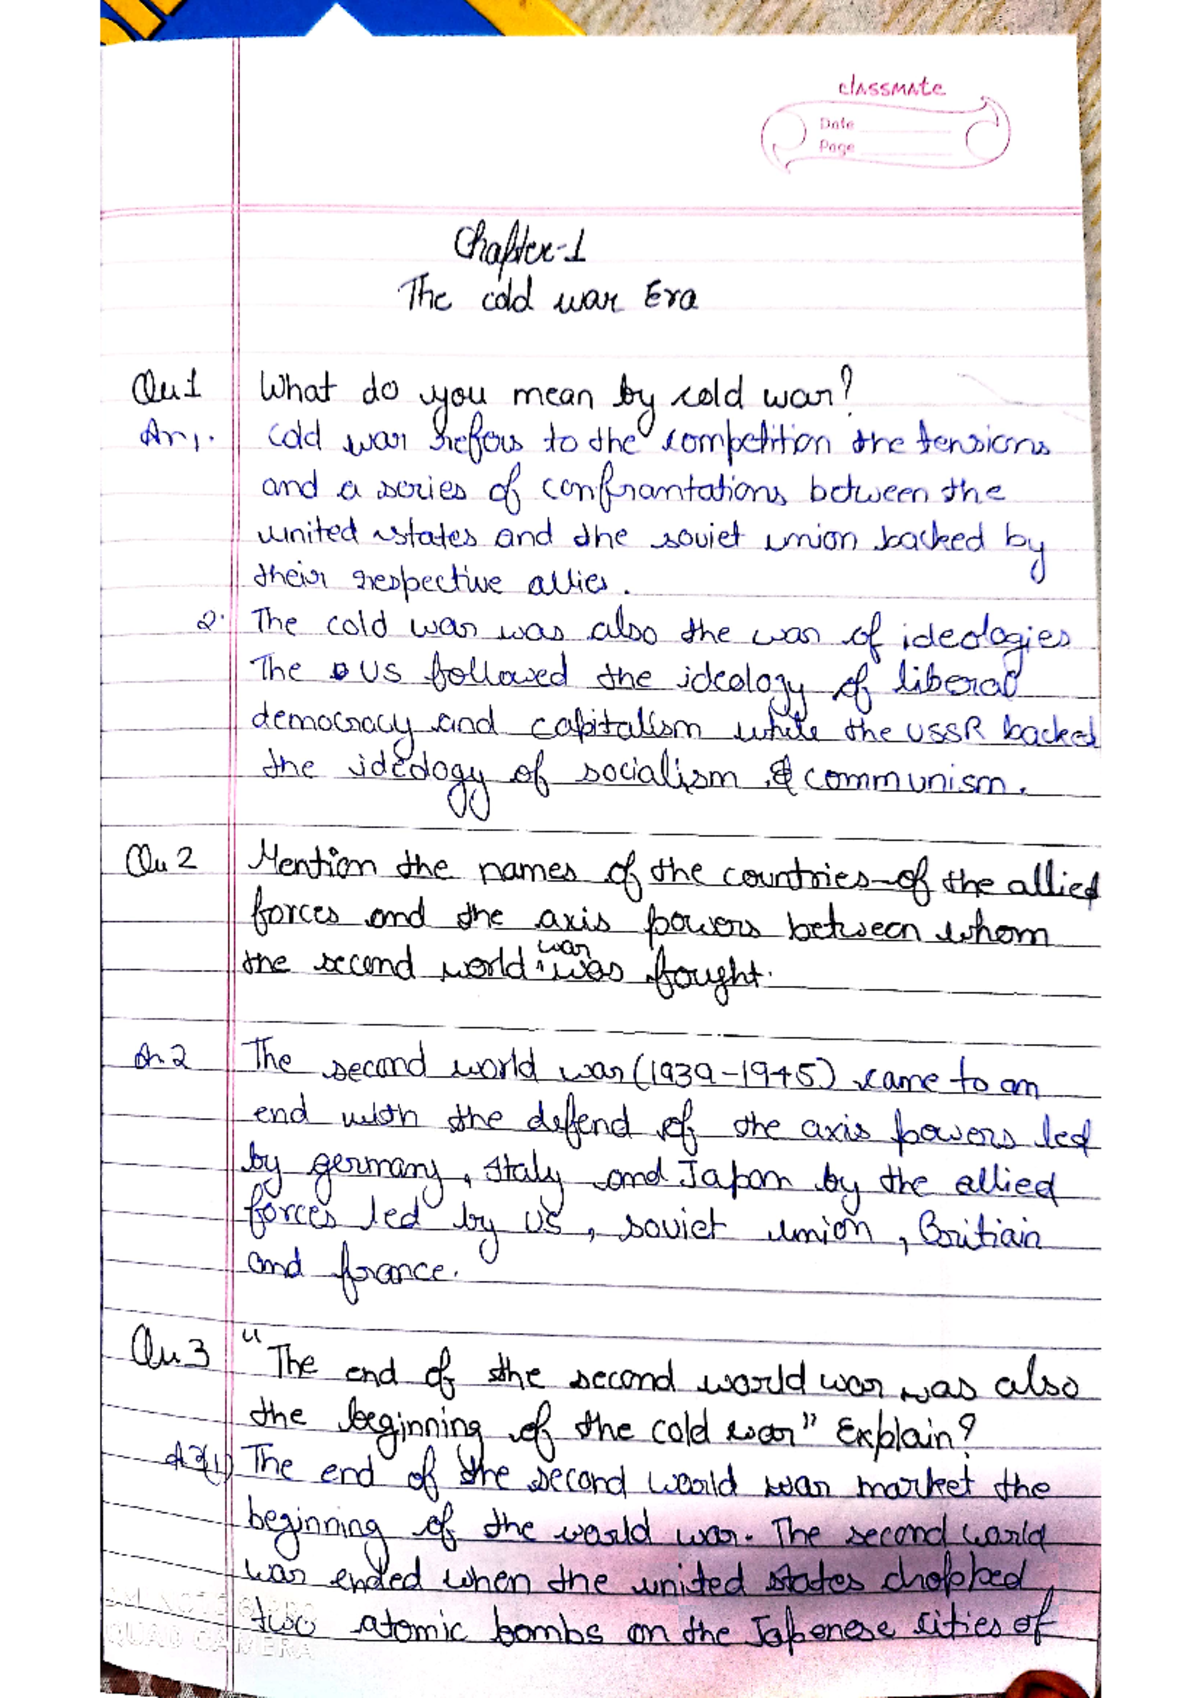 classmate
Date
Page
Chapter-1
The cold war Era
Qu 1 What do you mean by cold war?
An 1. Cold war refers to the competition the tensions
and a series of confrantations between the
united states and the soviet union backed by
their respective allies.
2. The cold war was also the war of ideologies
The US followed the ideology of liberal
democracy and capitalism while the USSR backed
the ideology of socialism & communism.
Qu 2 Mention the names of the countries of the allied
forces and the axis powers between whom
the second world war was fought.
An 2 The second world war (1939-1945) came to an
end with the defend of the axis powers led
by germany, Italy and Japan by the allied
forces led by US, soviet union, Britiain
and france.
Qu 3 "The end of the second world war was also
the beginning of the cold war" Explain?
A3 1) The end of the second world war market the
beginning of the world war. The second world
war ended when the united states dropped
two atomic bombs on the Japenese cities of
QUAD CAMERA